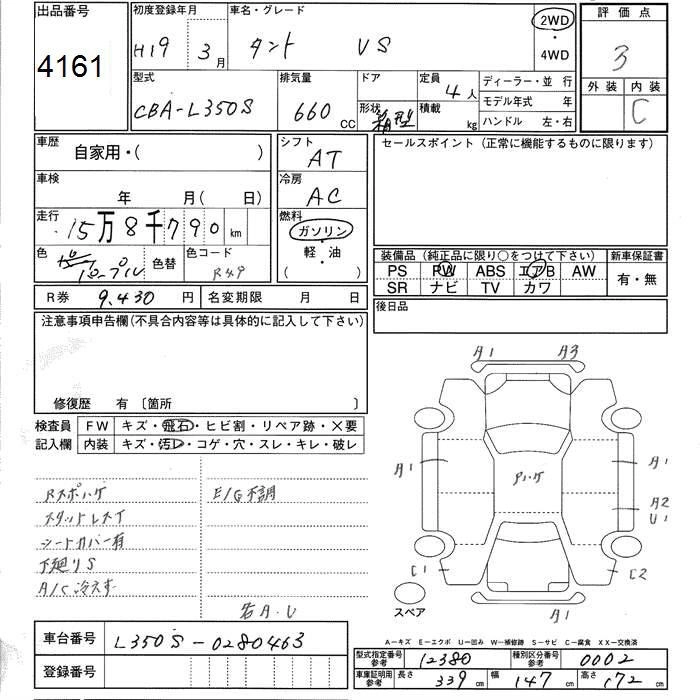 出品番号
4161
初度登録年月 H19 3月
車名・グレード タント VS
2WD
・
4WD
評価点
3
型式 CBA-L350S
排気量 660 CC
ドア
形状 箱型
定員 4人
積載 kg
ディーラー・並行
モデル年式 年
ハンドル 左・右
外装 内装
C
車歴 自家用・( )
シフト AT
セールスポイント (正常に機能するものに限ります)
車検 年 月(日)
冷房 AC
走行 15万8千790 km
燃料 ガソリン
・
軽・油
( )
色 パープル
色替
色コード R49
装備品 (純正品に限り○をつけて下さい)
新車保証書
PS PW ABS エアB AW
有・無
SR ナビ TV カワ
R券 9,430 円
名変期限 月 日
後日品
注意事項申告欄(不具合内容等は具体的に記入して下さい)
修復歴 有 〔箇所 〕
検査員
記入欄
FW キズ・飛石・ヒビ割・リペア跡・X要
内装 キズ・汚レ・コゲ・穴・スレ・キレ・破レ
Rスポハゲ
E/G不調
スタットレスイ
シートカバー有
下廻りS
A/C冷えず
若A.U
A1 A3
A1 A1
A2
U1
C1 C2
A1
スペア
A—キズ E—エクボ U—凹み W—補修跡 S—サビ C—腐食 XX—交換済
車台番号 L350S-0280463
登録番号
型式指定番号
参考
12380
種別区分番号
参考
0002
車庫証明用
参考
長さ 339 cm
幅 147 cm
高さ 172 cm